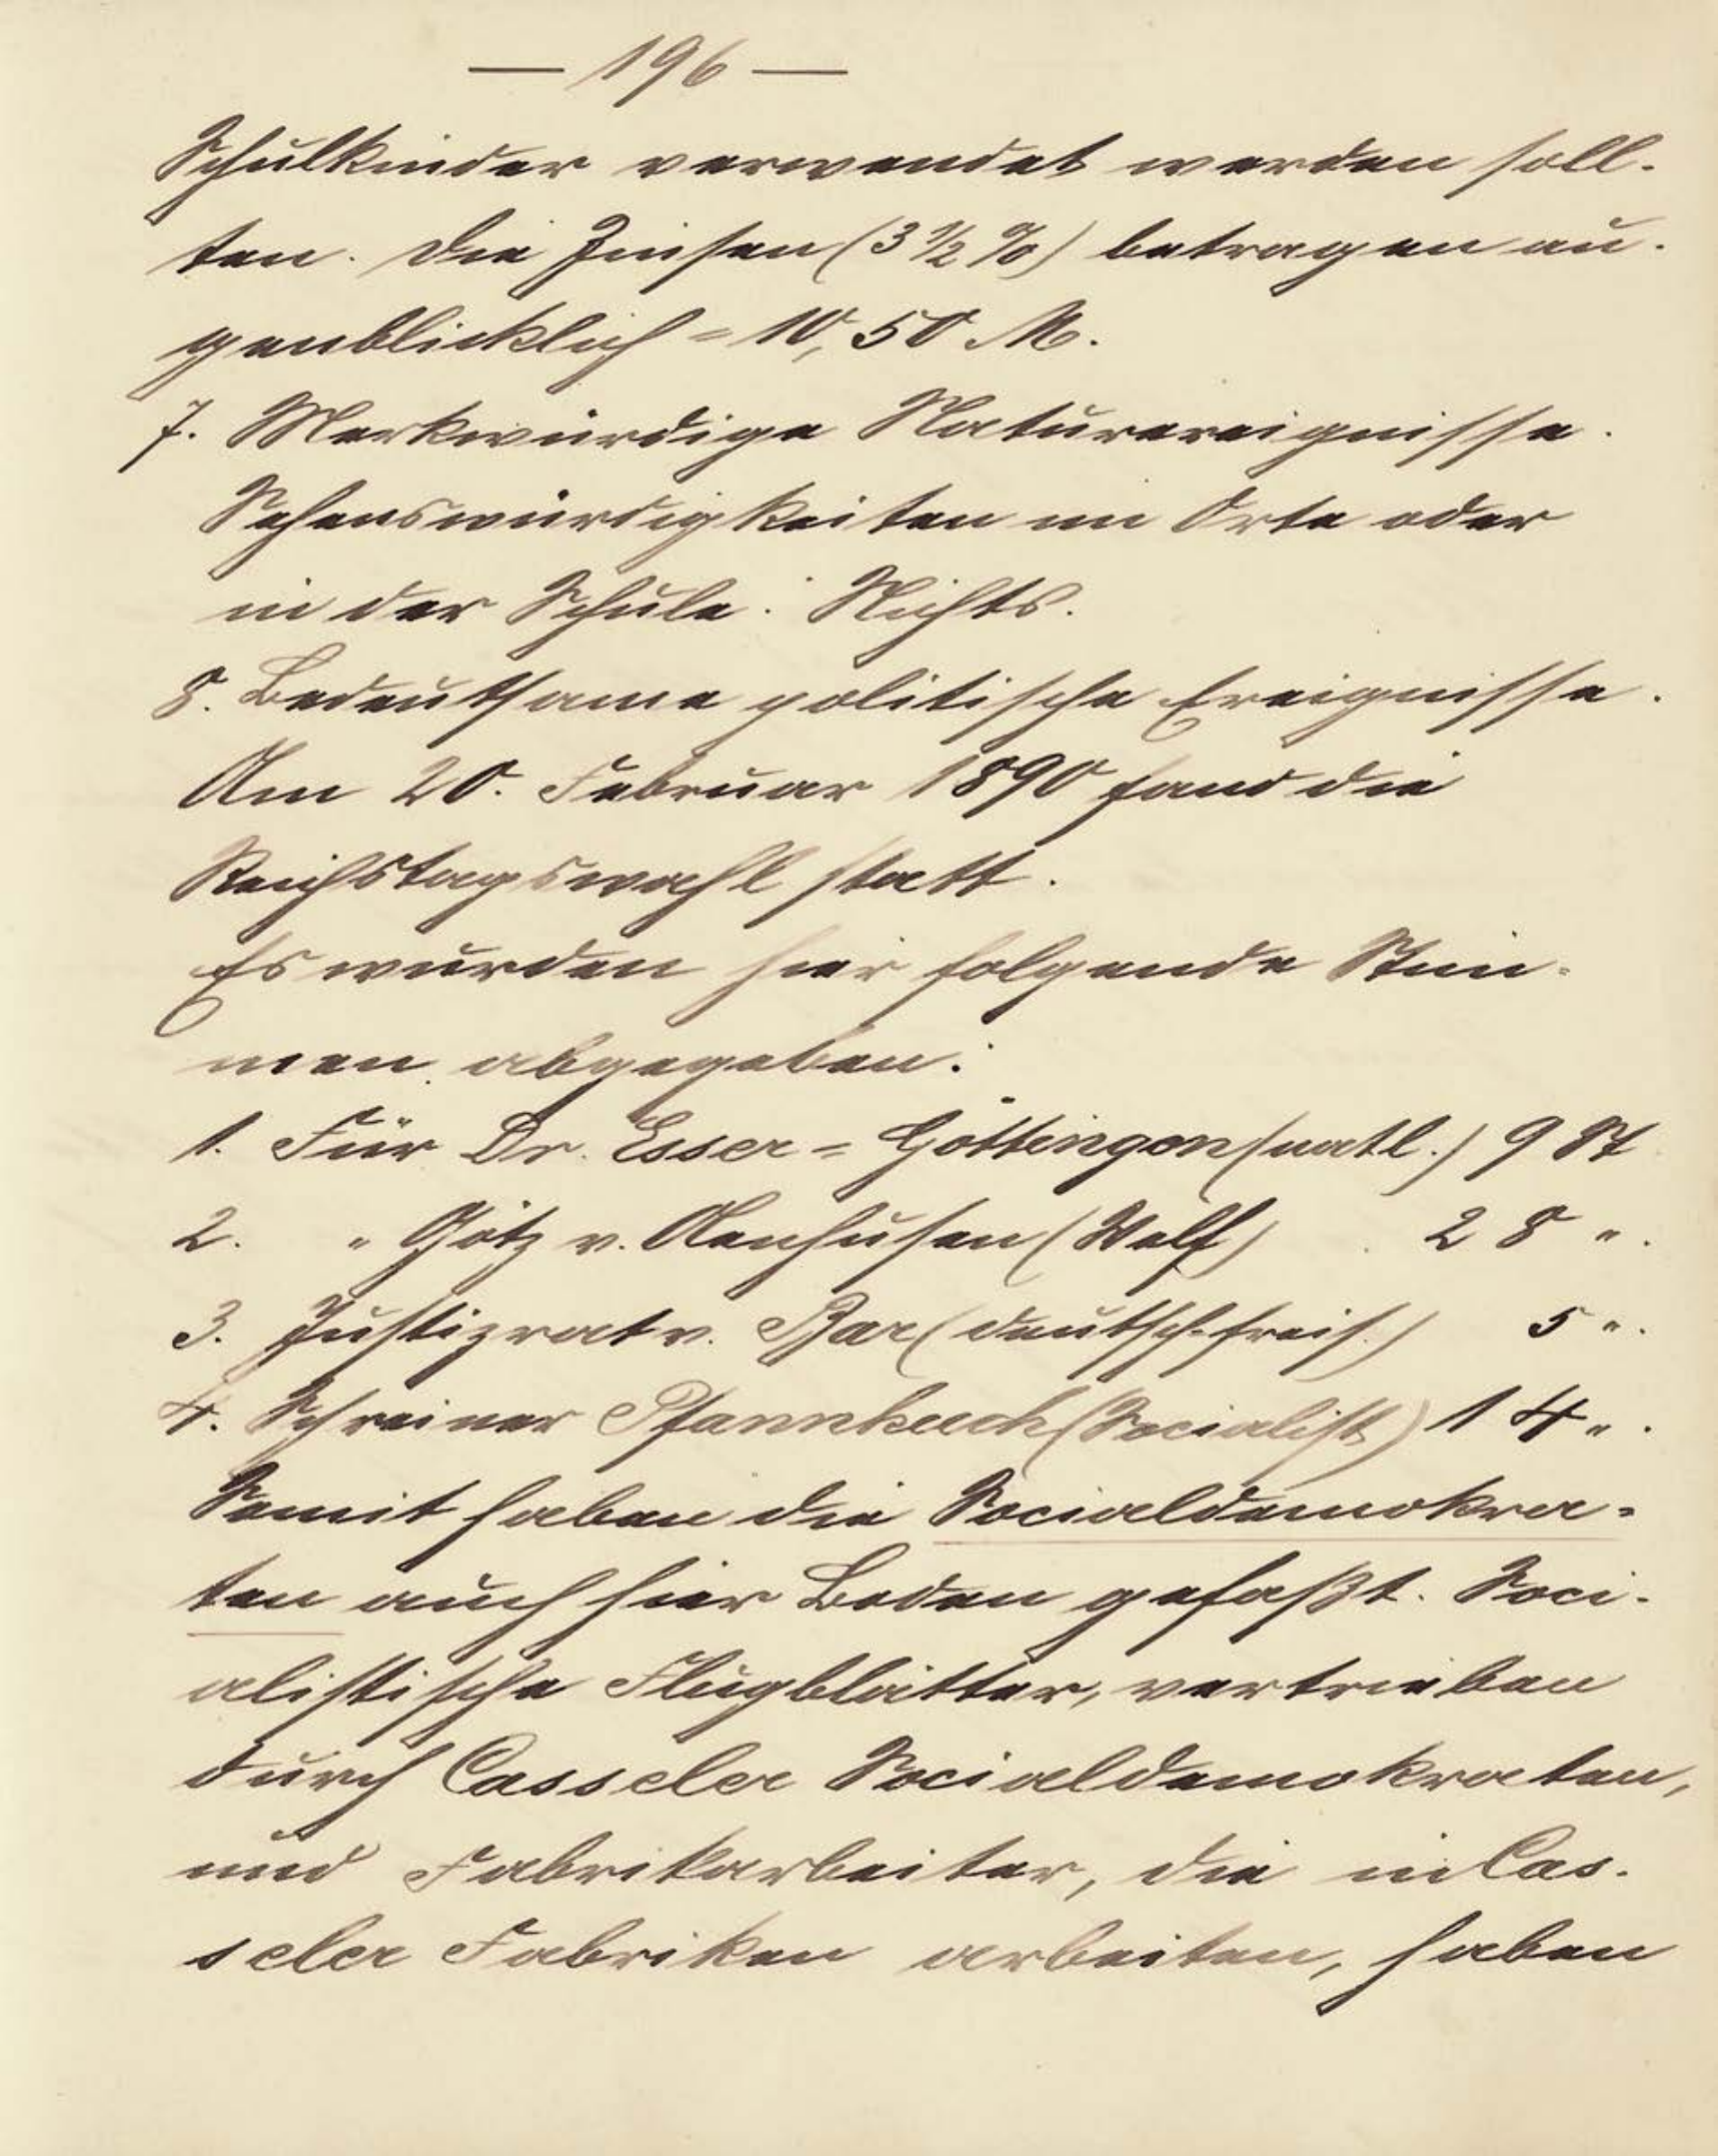 — 196 —
Schulkinder verwendet werden soll-
ten. Die Zinsen (3 ½ %) betragen au-
genblicklich = 10,50 M.
7. Merkwürdige Naturereignisse.
Sehenswürdigkeiten im Orte oder
in der Schule: Nichts.
8. Bedeuthsame politische Ereignisse.
Am 20. Februar 1890 fand die
Reichstagswahl statt.
Es wurden hier folgende Stim-
men abgegeben:
1. Für Dr. Esser = Göttingen (natl.) 9 St
2. " Götz v. Olenhusen (Welf) 28 ".
3. Justizrat v. Bar (deutsch-freis.) 5 ".
4. Schreiner Pfannkuch (Socialist) 14 ".
Somit haben die Socialdemokra-
ten auch hier Boden gefaßt. Soci-
alistische Flugblätter, vertrieben
durch Casseler Socialdemokraten,
und Fabrikarbeiter, die in Cas-
seler Fabriken arbeiten, haben